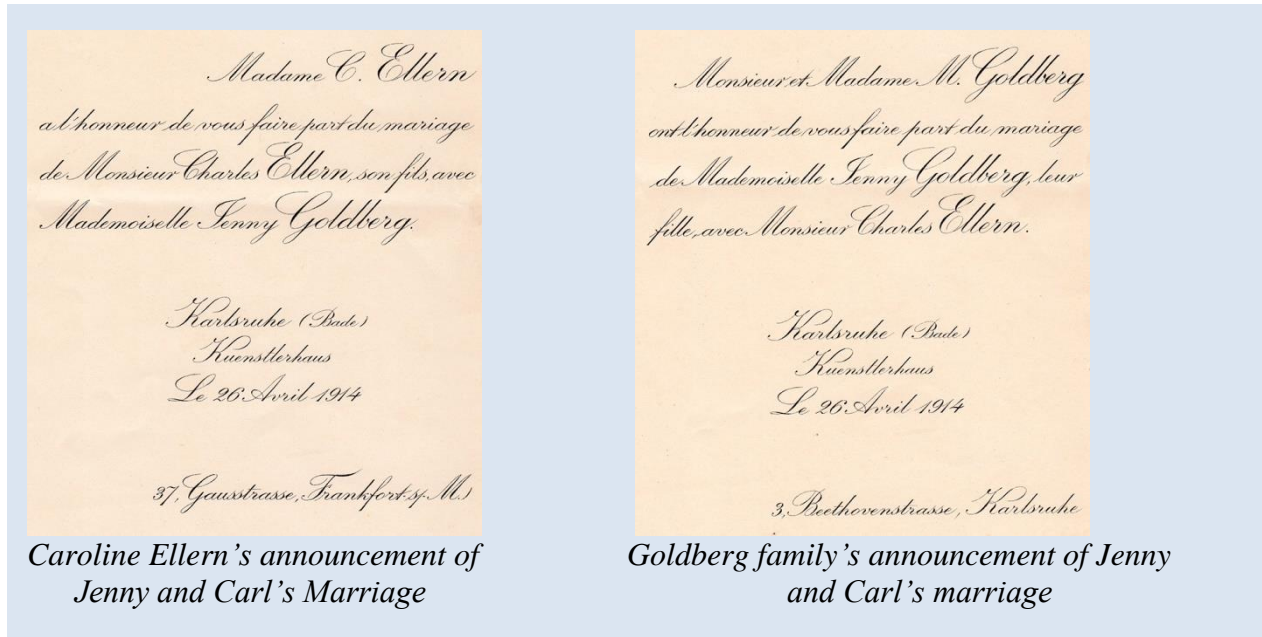 Madame C. Ellern
a l'honneur de vous faire part du mariage
de Monsieur Charles Ellern, son fils, avec
Mademoiselle Jenny Goldberg.
Karlsruhe (Bade)
Kuenstlerhaus
Le 26 Avril 1914
37, Gausstrasse, Frankfort s/ M.
Caroline Ellern’s announcement of
Jenny and Carl’s Marriage
Monsieur et Madame M. Goldberg
ont l'honneur de vous faire part du mariage
de Mademoiselle Jenny Goldberg, leur
fille, avec Monsieur Charles Ellern.
Karlsruhe (Bade)
Kuenstlerhaus
Le 26 Avril 1914
3, Beethovenstrasse, Karlsruhe
Goldberg family’s announcement of Jenny
and Carl’s marriage